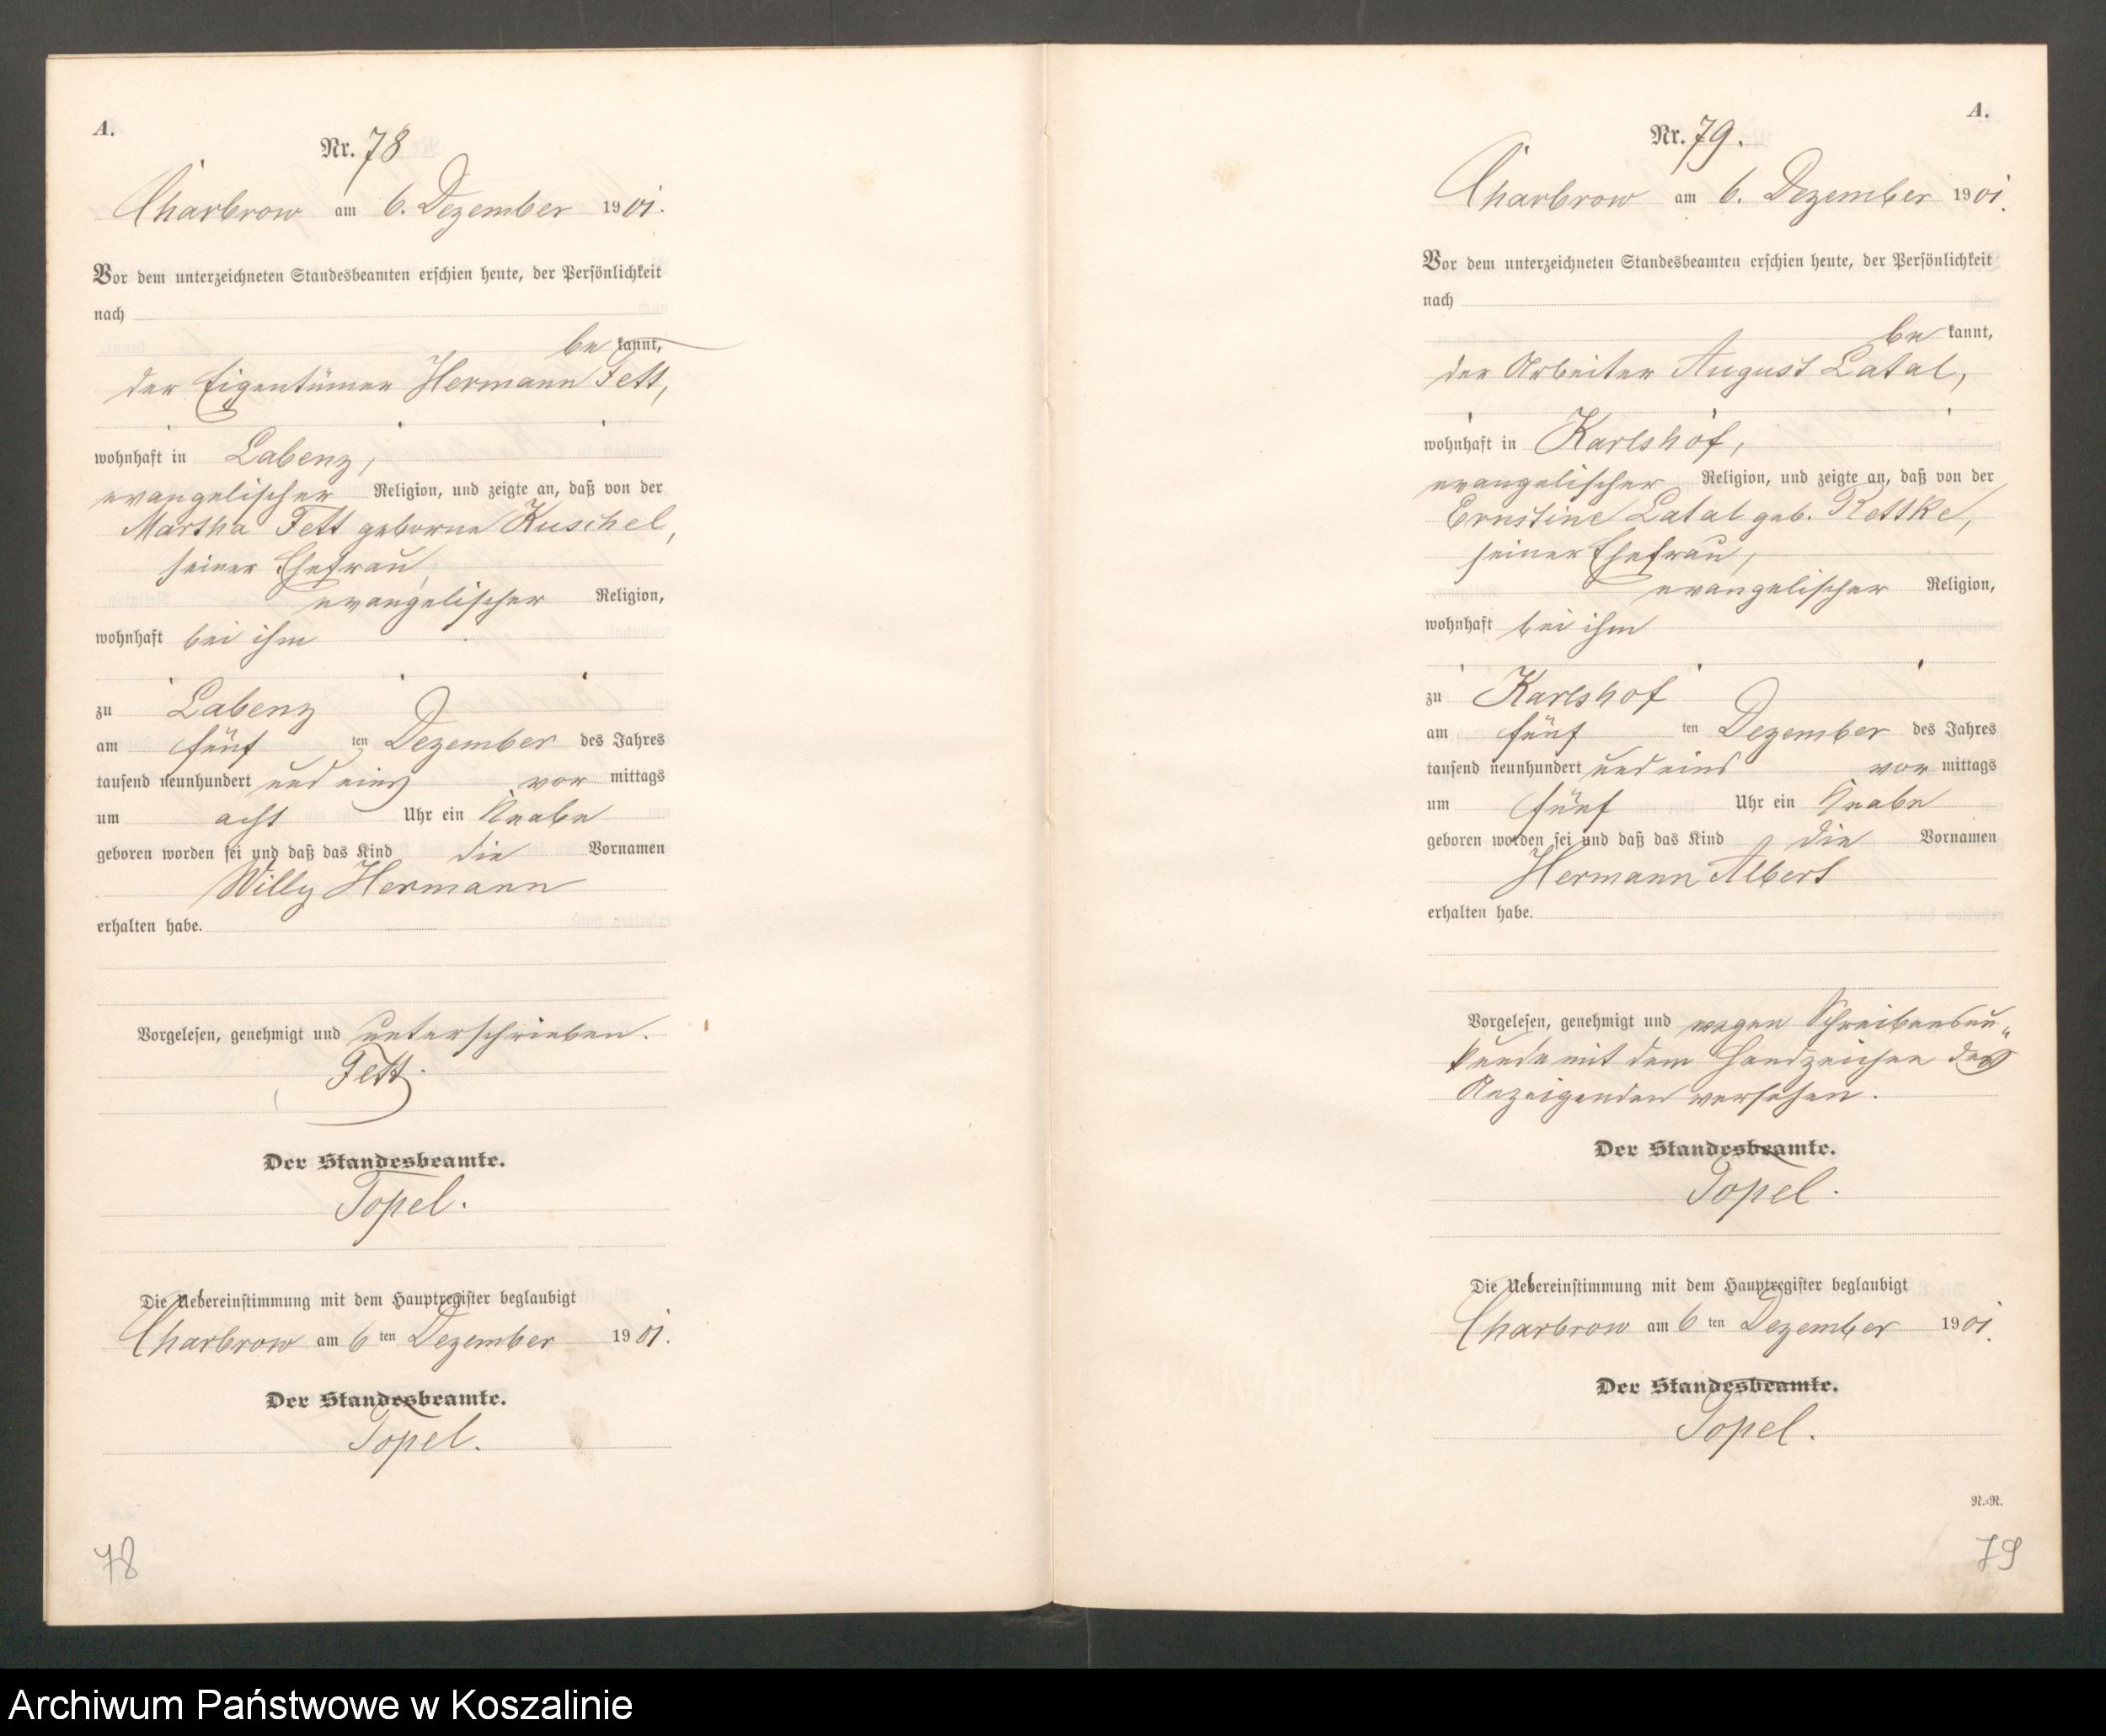 A.
Nr. 78
Charbrow am 6. Dezember 1901.
Vor dem unterzeichneten Standesbeamten erschien heute, der Persönlichkeit
nach
be kannt,
der Eigentümer Hermann Fett,
wohnhaft in Labenz,
evangelischer Religion, und zeigte an, daß von der
Martha Fett geborne Kuschel,
seiner Ehefrau,
evangelischer Religion,
wohnhaft bei ihm
zu Labenz
am fünf ten Dezember des Jahres
tausend neunhundert und eins vor mittags
um acht Uhr ein Knabe
geboren worden sei und daß das Kind die Vornamen
Willy Hermann
erhalten habe.
Vorgelesen, genehmigt und unterschrieben.
Fett.
Der Standesbeamte.
Topel.
Die Uebereinstimmung mit dem Hauptregister beglaubigt
Charbrow am 6 ten Dezember 1901.
Der Standesbeamte.
Topel.
78
A.
Nr. 79.
Charbrow am 6. Dezember 1901.
Vor dem unterzeichneten Standesbeamten erschien heute, der Persönlichkeit
nach
be kannt,
der Arbeiter August Latal,
wohnhaft in Karlshof,
evangelischer Religion, und zeigte an, daß von der
Ernstine Latal geb. Rettke,
seiner Ehefrau,
evangelischer Religion,
wohnhaft bei ihm
zu Karlshof
am fünf ten Dezember des Jahres
tausend neunhundert und eins vor mittags
um fünf Uhr ein Knabe
geboren worden sei und daß das Kind die Vornamen
Hermann Albert
erhalten habe.
Vorgelesen, genehmigt und wegen Schreibensun„
kunde mit dem Handzeichen des
Anzeigenden versehen.
Der Standesbeamte.
Topel.
Die Uebereinstimmung mit dem Hauptregister beglaubigt
Charbrow am 6 ten Dezember 1901.
Der Standesbeamte.
Topel.
N.=R.
79
Archiwum Państwowe w Koszalinie